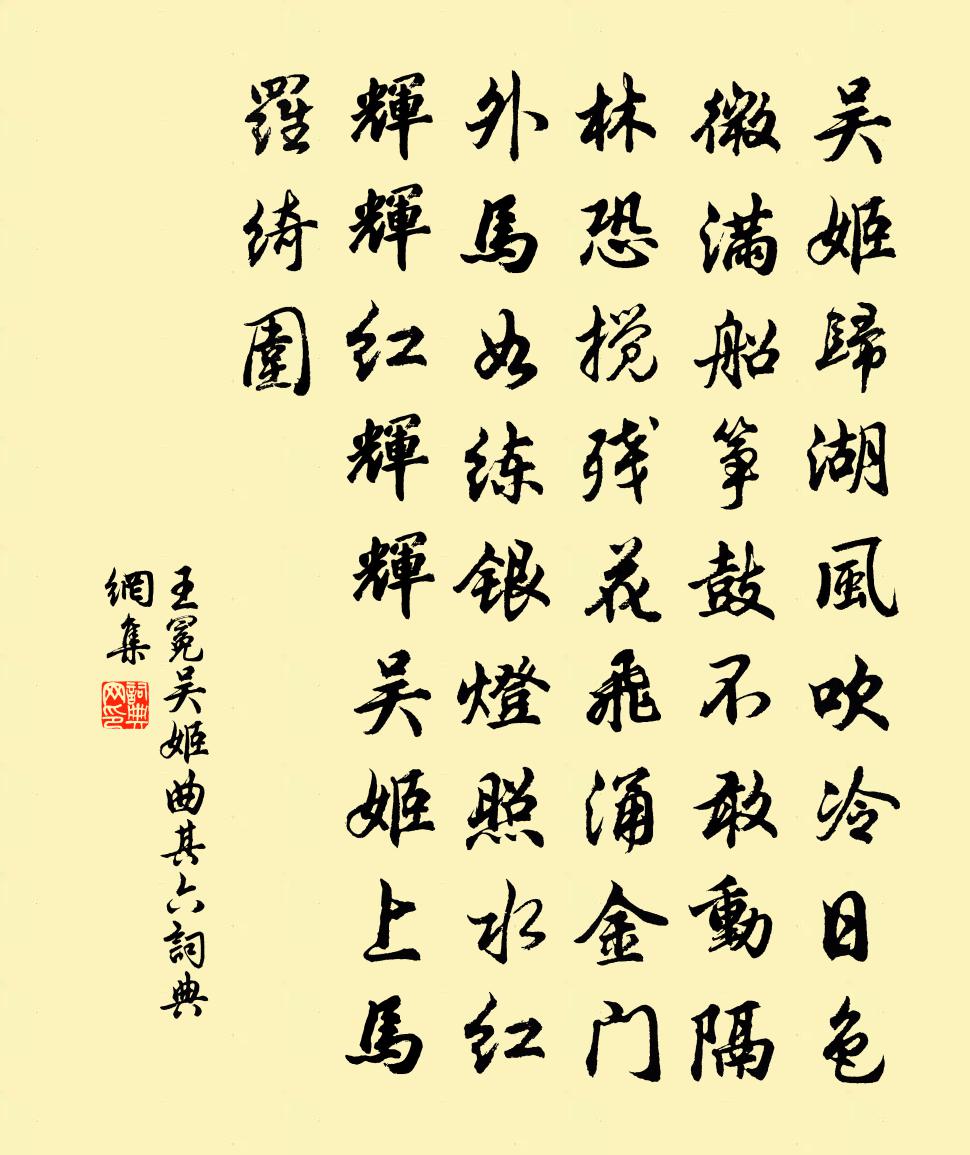 吴姬歸湖風吹冷日色
微滿船筝鼓不敢動隔
林恐搅残花飛涌金门
外馬如练銀燈照水红
輝輝红輝輝吴姬上馬
羅綺圍
王冕吴姬曲其六詞典
網集
詞典网印